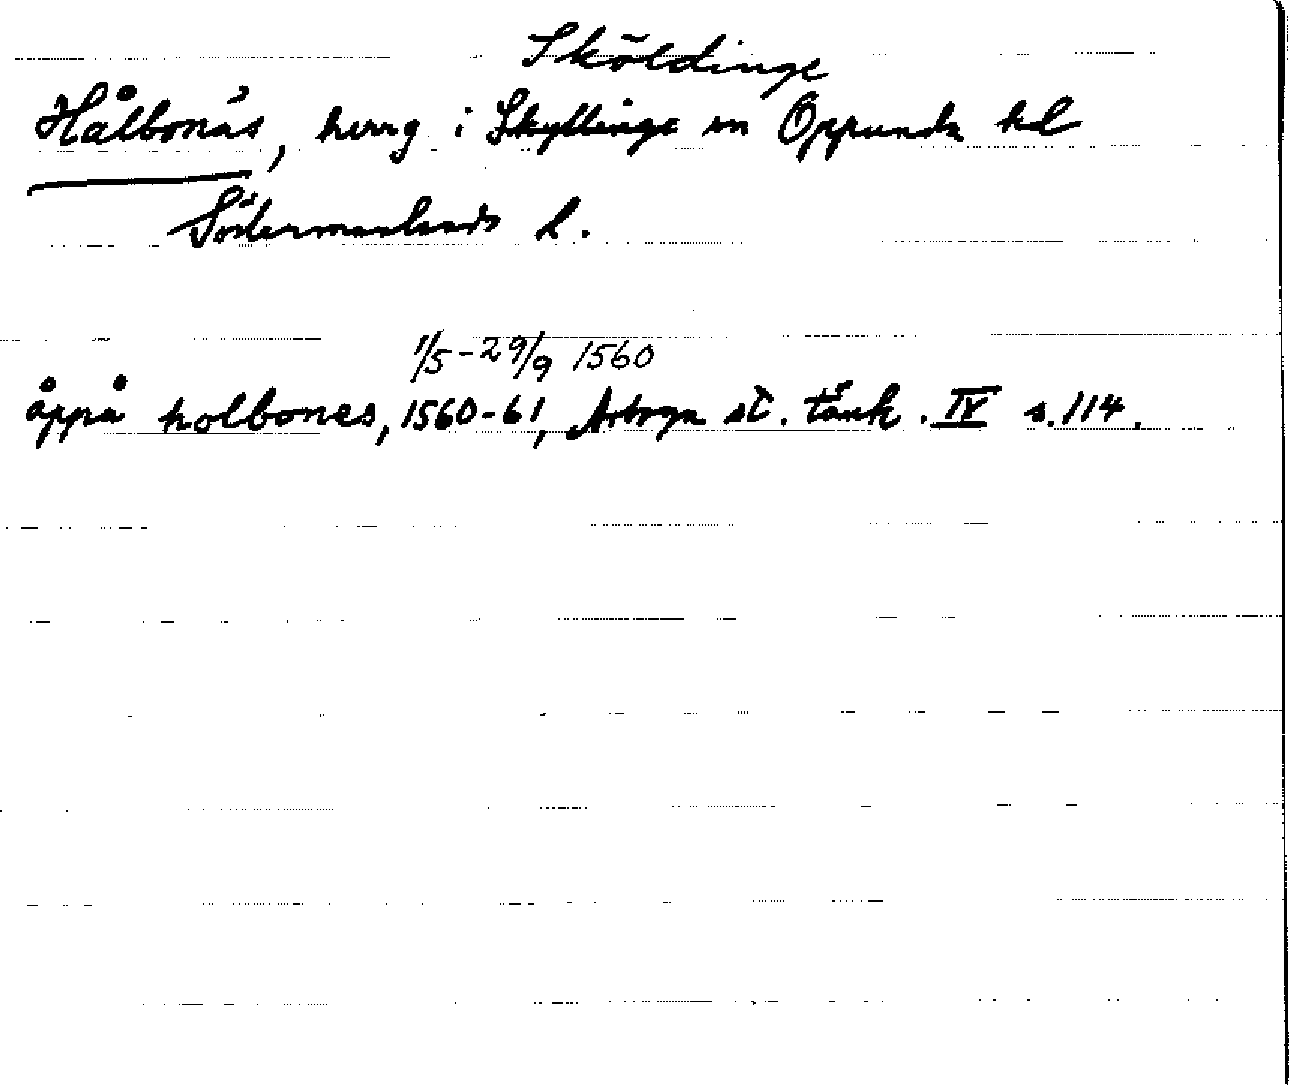 Sköldinge
Hålbonäs, herrg i Skyttinge sn Oppunda hd
Södermanlands l.
1/5-29/9 1560
åppå holbones, 1560-61, Arboga st. tänk. IV s. 114.